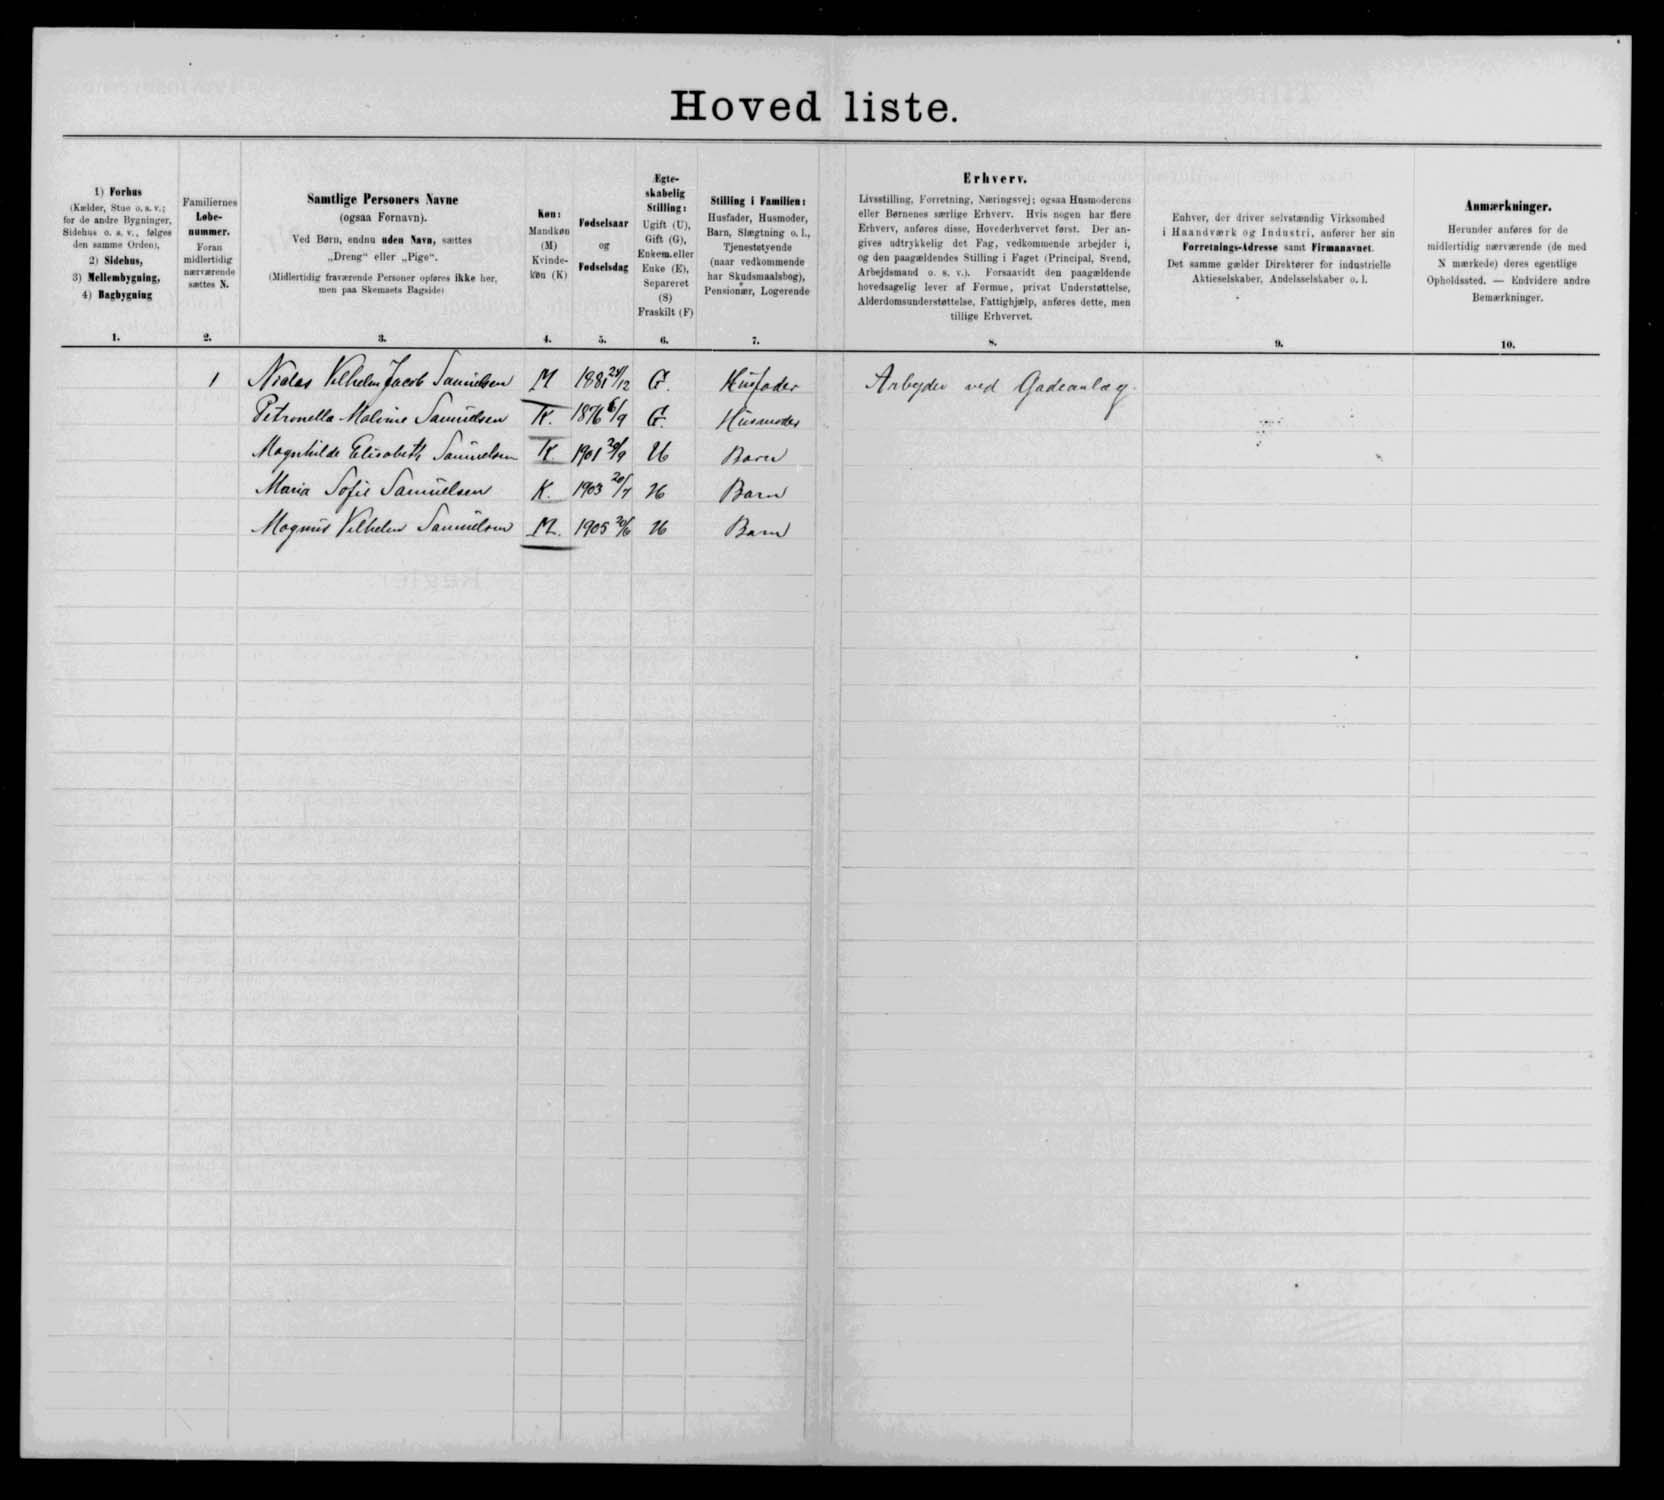 Hoved liste.
1) Forhus
(Kælder, Stue o. s. v.;
for de andre Bygninger,
Sidehus o. s. v., følges
den samme Orden),
2) Sidehus,
3) Mellembygning,
4) Bagbygning
1.
Familiernes
Løbe-
nummer.
Foran
midlertidig
nærværende
sættes N.
2.
Samtlige Personers Navne
(ogsaa Fornavn).
Ved Børn, endnu uden Navn, sættes
„Dreng“ eller „Pige“.
(Midlertidig fraværende Personer opføres ikke her,
men paa Skemaets Bagside)
3.
Køn:
Mandkøn
(M)
Kvinde-
køn (K)
4.
Fødselsaar
og
Fødselsdag
5.
Ægte-
skabelig
Stilling:
Ugift (U),
Gift (G),
Enkem. eller
Enke (E),
Separeret
(S)
Fraskilt (F)
6.
Stilling i Familien:
Husfader, Husmoder,
Barn, Slægtning o. l.,
Tjenestetyende
(naar vedkommende
har Skudsmaalsbog),
Pensionær, Logerende
7.
Erhverv.
Livsstilling, Forretning, Næringsvej; ogsaa Husmoderens
eller Børnenes særlige Erhverv. Hvis nogen har flere
Erhverv, anføres disse, Hovederhvervet først. Der an-
gives udtrykkelig det Fag, vedkommende arbejder i,
og den paagældendes Stilling i Faget (Principal, Svend,
Arbejdsmand o. s. v.). Forsaavidt den paagældende
hovedsagelig lever af Formue, privat Understøttelse,
Alderdomsunderstøttelse, Fattighjælp, anføres dette, men
tillige Erhvervet.
8.
Enhver, der driver selvstændig Virksomhed
i Haandværk og Industri, anfører her sin
Forretnings-Adresse samt Firmanavnet.
Det samme gælder Direktører for industrielle
Aktieselskaber, Andelsselskaber o. l.
9.
Anmærkninger.
Herunder anføres for de
midlertidig nærværende (de med
N mærkede) deres egentlige
Opholdssted. — Endvidere andre
Bemærkninger.
10.
1 Vilhelm Jacob Samuelsen M 1881 24/12 G. Husfader Arbejder ved Gadeanlæg.
Petronella Malvine Samuelsen K. 1876 6/9 G. Husmoder
Magnhilde Elisabeth Samuelsen K. 1901 29/9 U Barn
Maria Sofie Samuelsen K. 1903 20/7 U Barn
Magnus Vilhelm Samuelsen M. 1905 20/6 U Barn